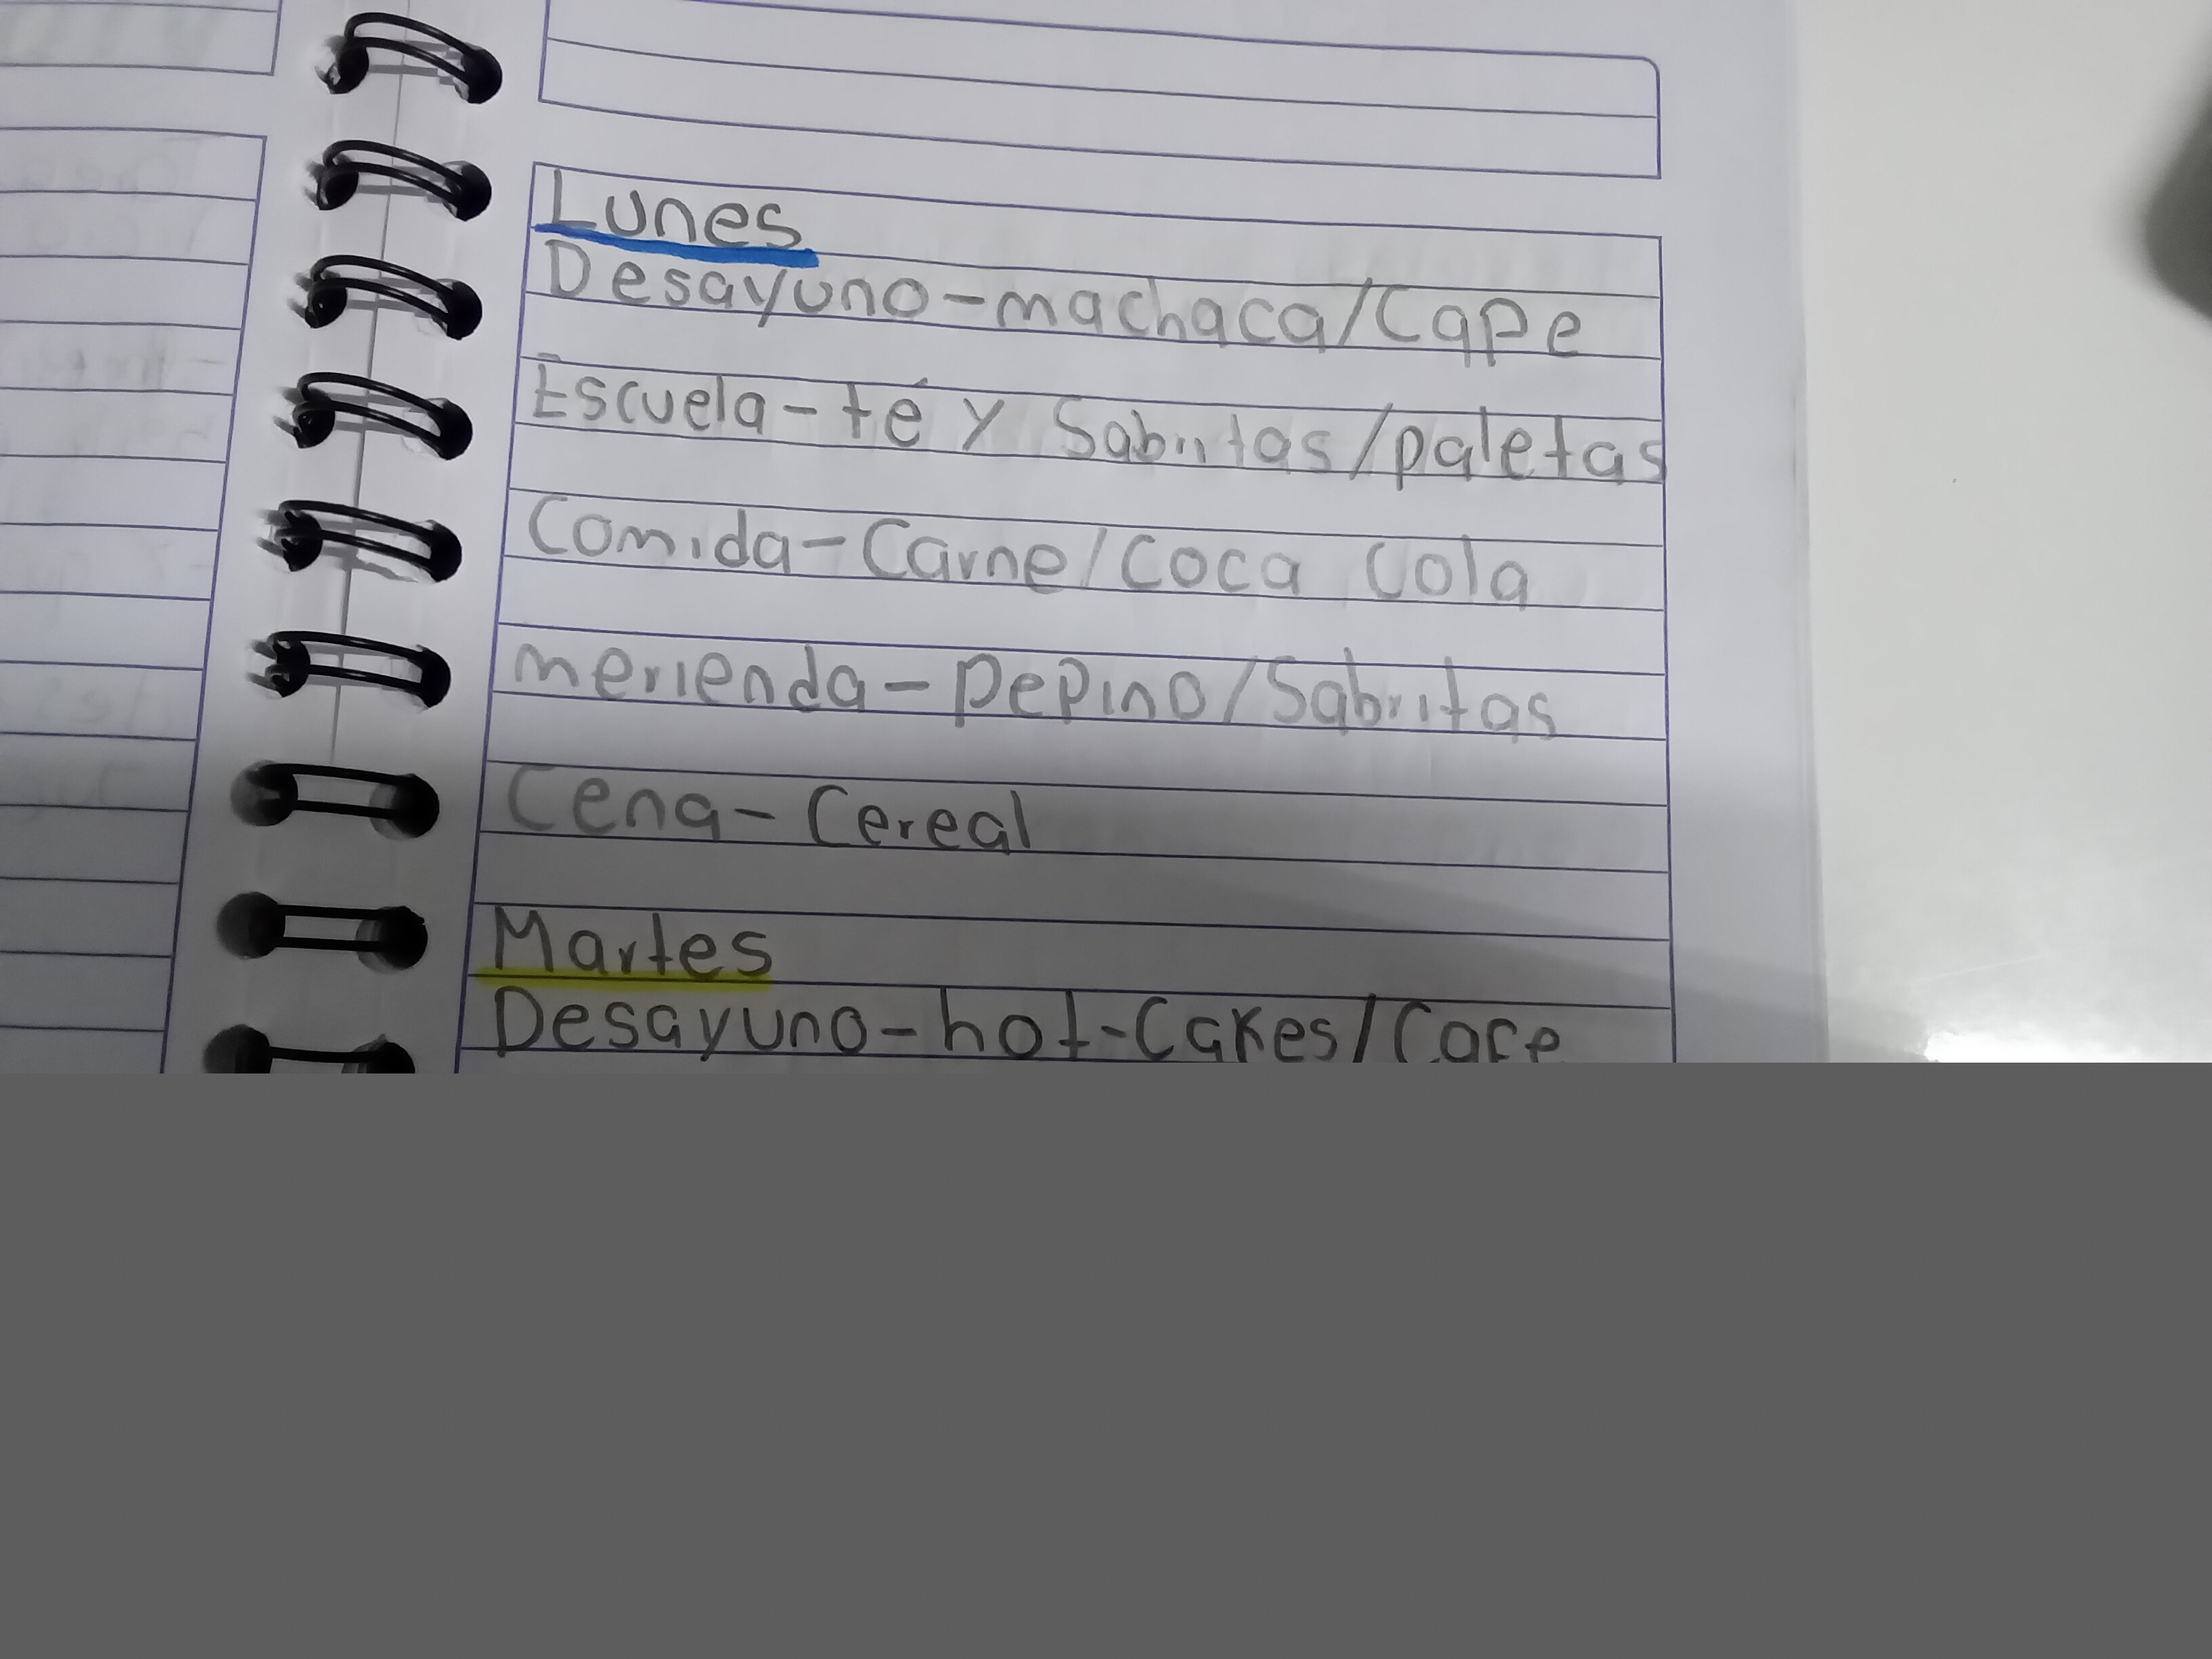 Lunes
Desayuno-machaca/Cape
Escuela-té y Sabritas/paletas
Comida-Carne/Coca Cola
merienda-pepino/Sabritas
Cena-Cereal
Martes
Desayuno-hot-Cakes/Cafe